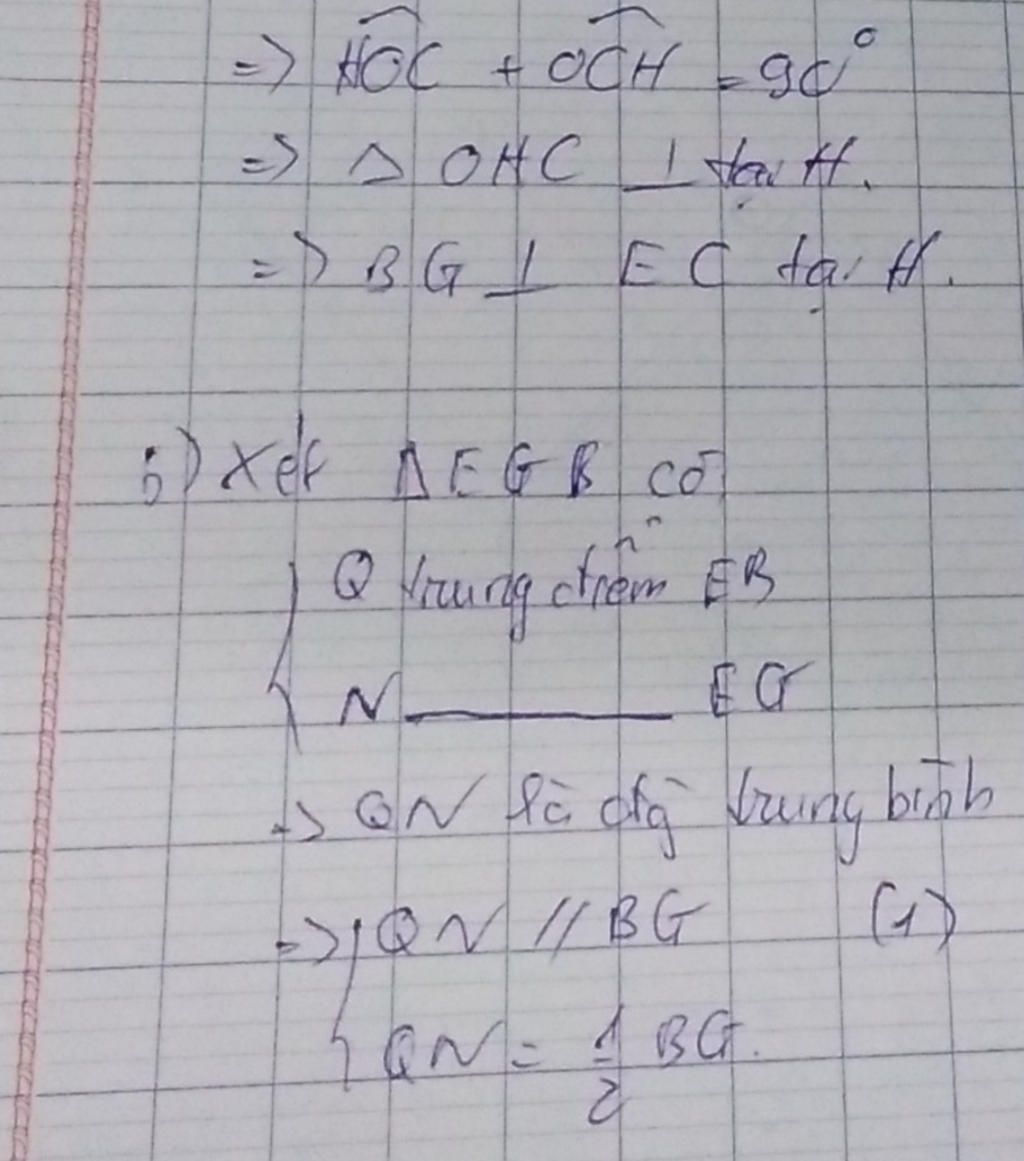 => HOC + OCH = 90°
=> Δ OHC ⊥ tại H.
=> BG ⊥ EC tại H.
b) Xét ΔEGB có
Q trung điểm EB
N ———— EG
=> QN là đtg trung bình
=> QN // BG (1)
QN = 1/2 BG.